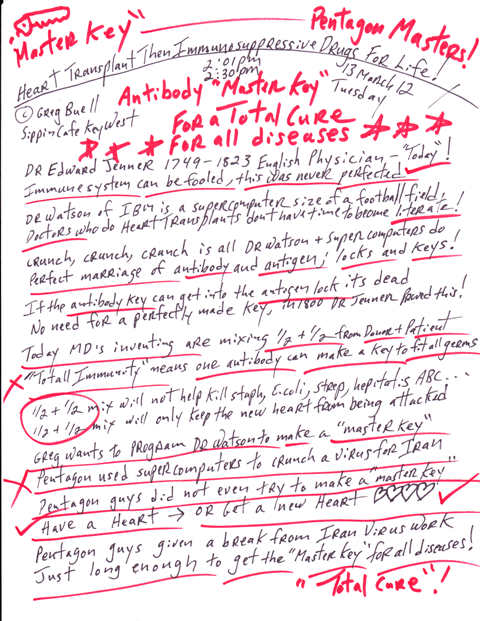 "Master Key" Pentagon Masters!
Heart Transplant Then Immunosuppressive Drugs For Life!
2:01pm
2:30pm
13 March 12
Tuesday
© Greg Buell
Sippin Cafe Key West
Antibody "Master Key"
For a Total Cure
For all diseases
DR Edward Jenner 1749-1823 English Physician - "Today"!
Immune system can be fooled, this was never perfected
DR Watson of IBM is a supercomputer size of a football field,
Doctors who do Heart Transplants dont have time to beome literate!
crunch, crunch, crunch is all DR Watson + Super computers do
Perfect marriage of antibody and antigen, locks and keys!
If the antibody key can get into the antogen lock its dead
No need for a perfectly made key, in 1800 DR Jenner Poved this!
Today MD's inventing are mixing 1/2 + 1/2 from Donor + Patient
"Totall Immunity" means one antibody can make a key to fit all germs
1/2 + 1/2 mix will not help kill staph, E.coli, strep, hepitatis ABC...
1/2 + 1/2 mix will only keep the new heart from being attacked
Greg wants to program DR Watson to make a "master key"
Pentagon used supercomputers to crunch a virus for Iran
Pentagon guys did not even try to make a "master key"
Have a Heart → or Get a new Heart
Pentagon guys given a break from Iran Virus work
Just long enough to get the "Master Key" for all diseases!
"Total Cure"!